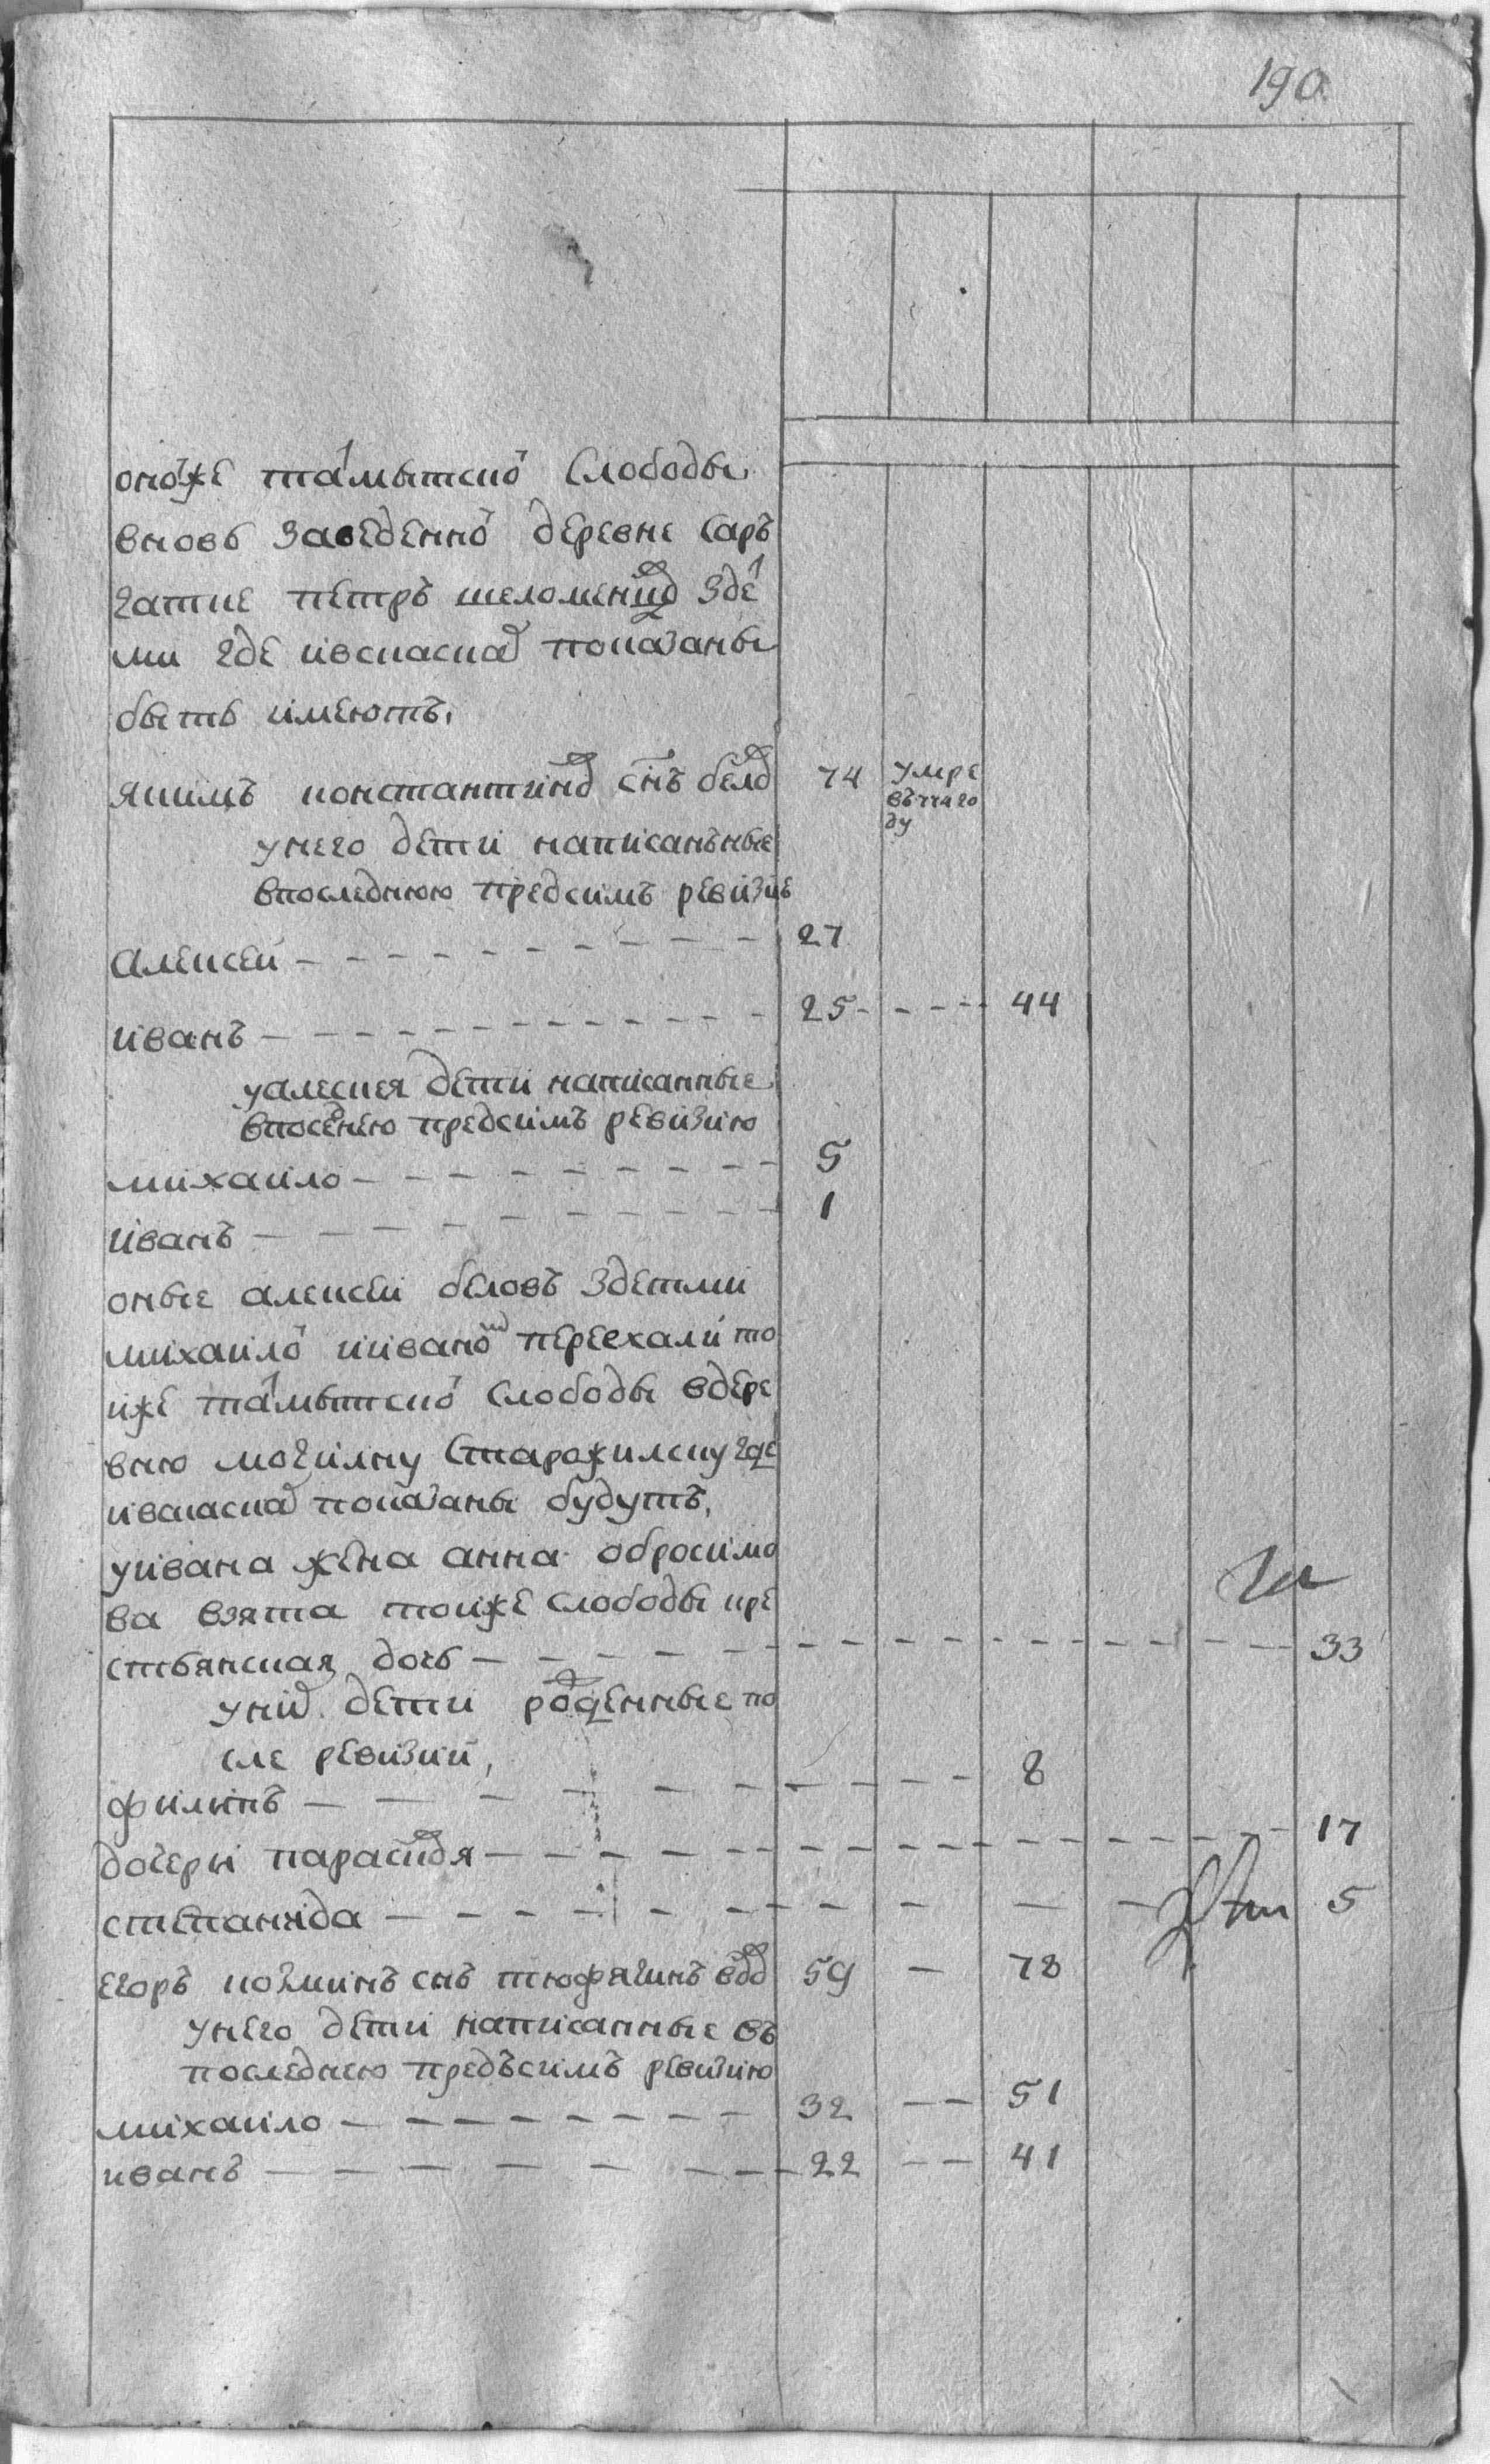 190
оной же тамытской Слободы
вновь заведенной деревне Сарь
гатке петръ шеломенцов Здет
ми где ивсказках показаны
быть имеютъ,
якимъ константинов снъ белов 74 умре
въ 774 го
ду
унего дети написанъные
впоследнюю предсимъ ревизие
Алексей 27
иванъ 25 44
уалексея дети написанные
впоследнею предсимъ ревизию
михаило 5
иванъ 1
оные алексеи беловъ Здетми
михаилой ииваном переехали то
иже тамытской Слободы вдере
вню могилну Старожилску где
ивсказках показаны будутъ,
уивана жена анна обросимо
ва взята тоиже слободы кре
стьянская дочь 33
уних дети рожденные по
сле ревизии,
филипъ 8
дочери парасковя 17
степанида 5
егоръ козминъ снъ тюфягинъ вдов 59 78
унего дети написанные въ
последнею предъсимъ ревизию
михаило 32 51
иванъ 22 41